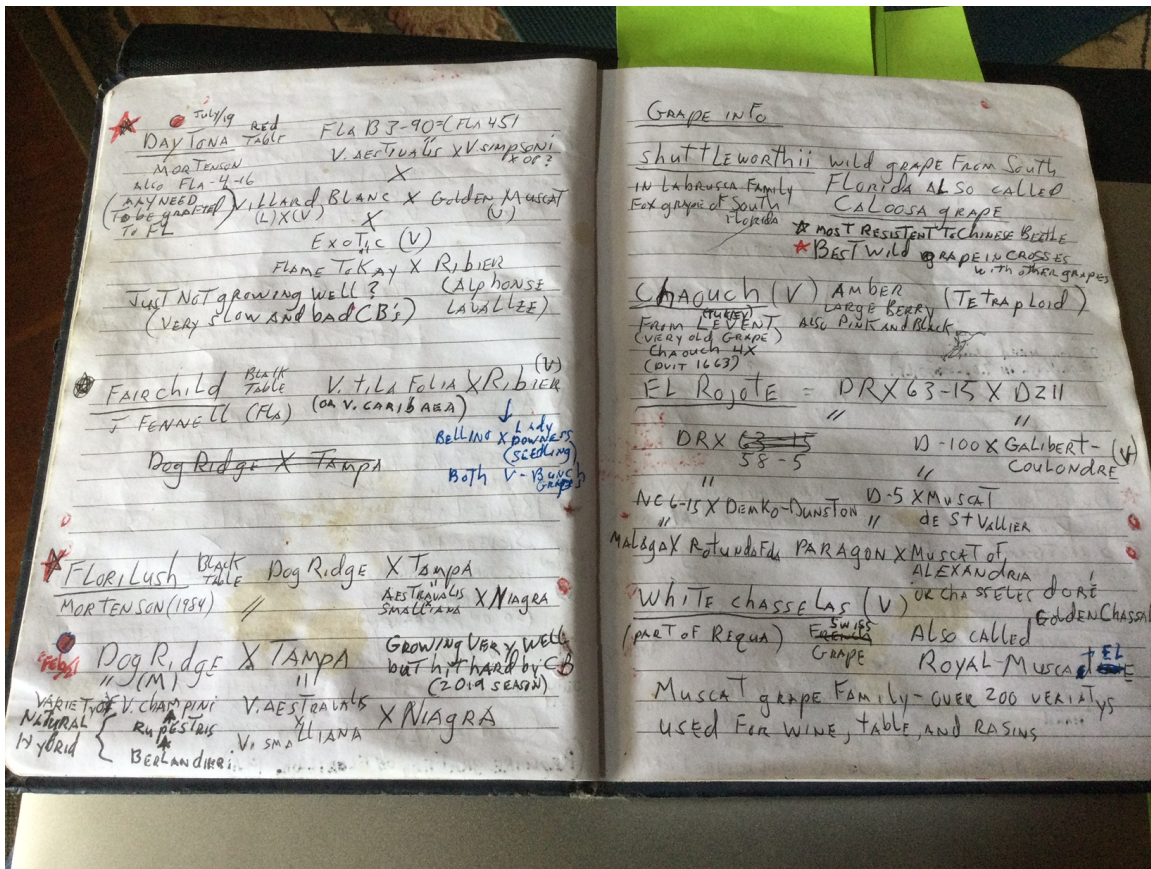 July/19
DAYTONA RED TABLE FLA B 3-90=(FLA 451
MORTENSON V. AESTIVALIS X V. SIMPSONI
X OP?
ALSO FLA-4-16 X
(MAY NEED TO BE GRAFTED) VILLARD BLANC X GOLDEN MUSCAT
TO FL (L)X(V) (V)
X
EXOTIC (V)
FLAME TOKAY X RIBIER
JUST NOT growing well? (ALPHONSE
(VERY SLOW AND bad CB's) LAVALLZE)
FAIRCHILD BLACK TABLE V. tiLA FOLIA X RibiER (V)
J FENNELL (FLA) (OR V. CARIBAEA)
BELLINO X LADY DOWNERS
(SEEDLING)
Both V-Bunch GRAPES
Dog RidgE X TAMPA
FLORILUSH BLACK TABLE Dog Ridge X TAMPA
MORTENSON (1984) " AESTRAVALIS SMALLIANA X NIAGRA
Feb
Dog RIDGE X TAMPA GROWING VERY WELL
" (M) " but hit hard by CB
(2019 SEASON)
VARIETY OF V. champini V. AESTRAVALIS X NIAGRA
NATURAL HYbRid { RUPESTRIS X V. SMALLIANA
BERLANDIERi
GRAPE INFO
shuTTLEWORTHII wild grape From South
IN LABRUSCA FAMILY FLORIDA ALSO CALLED
FOX GRAPE OF SOUTH FLORIDA CALOOSA grape
MOST RESISTENT To CHINESE BEETLE
BEST Wild gRAPE IN CROSSES
with other grapes
CHAOUCH (V) AMBER (TETRAPLOID)
LARGE BERRY
(TURKEY)
FROM LEVENT ALSO PINK AND BlACK
(VERY OLD GRAPE)
Chaouch 4X
(DVIT 1663)
EL ROJOTE = DRX 63-15 X D211
" "
DRX 63-15 D-100 X GALIBERT- (V)
58-5 COULONDRE
" "
NC 6-15 X DEMKO-DUNSTON D-5 X MUSCAT
" " dE St VALLIER
MALAGA X ROTUNDAFOLIA PARAGON X MUSCAT OF
ALEXANDRIA
OR CHASSELES dORÉ
WhiTE CHASSELAS (V) GOLDEN CHASSAL
(PART OF REQUA) FRENCH SWISS GRAPE Also called
ROYAL-MUSCAdtEL
MUSCAT grape FAMILY - OVER 200 VERIATYS
USED FOR WINE, TABLE, AND RASINS